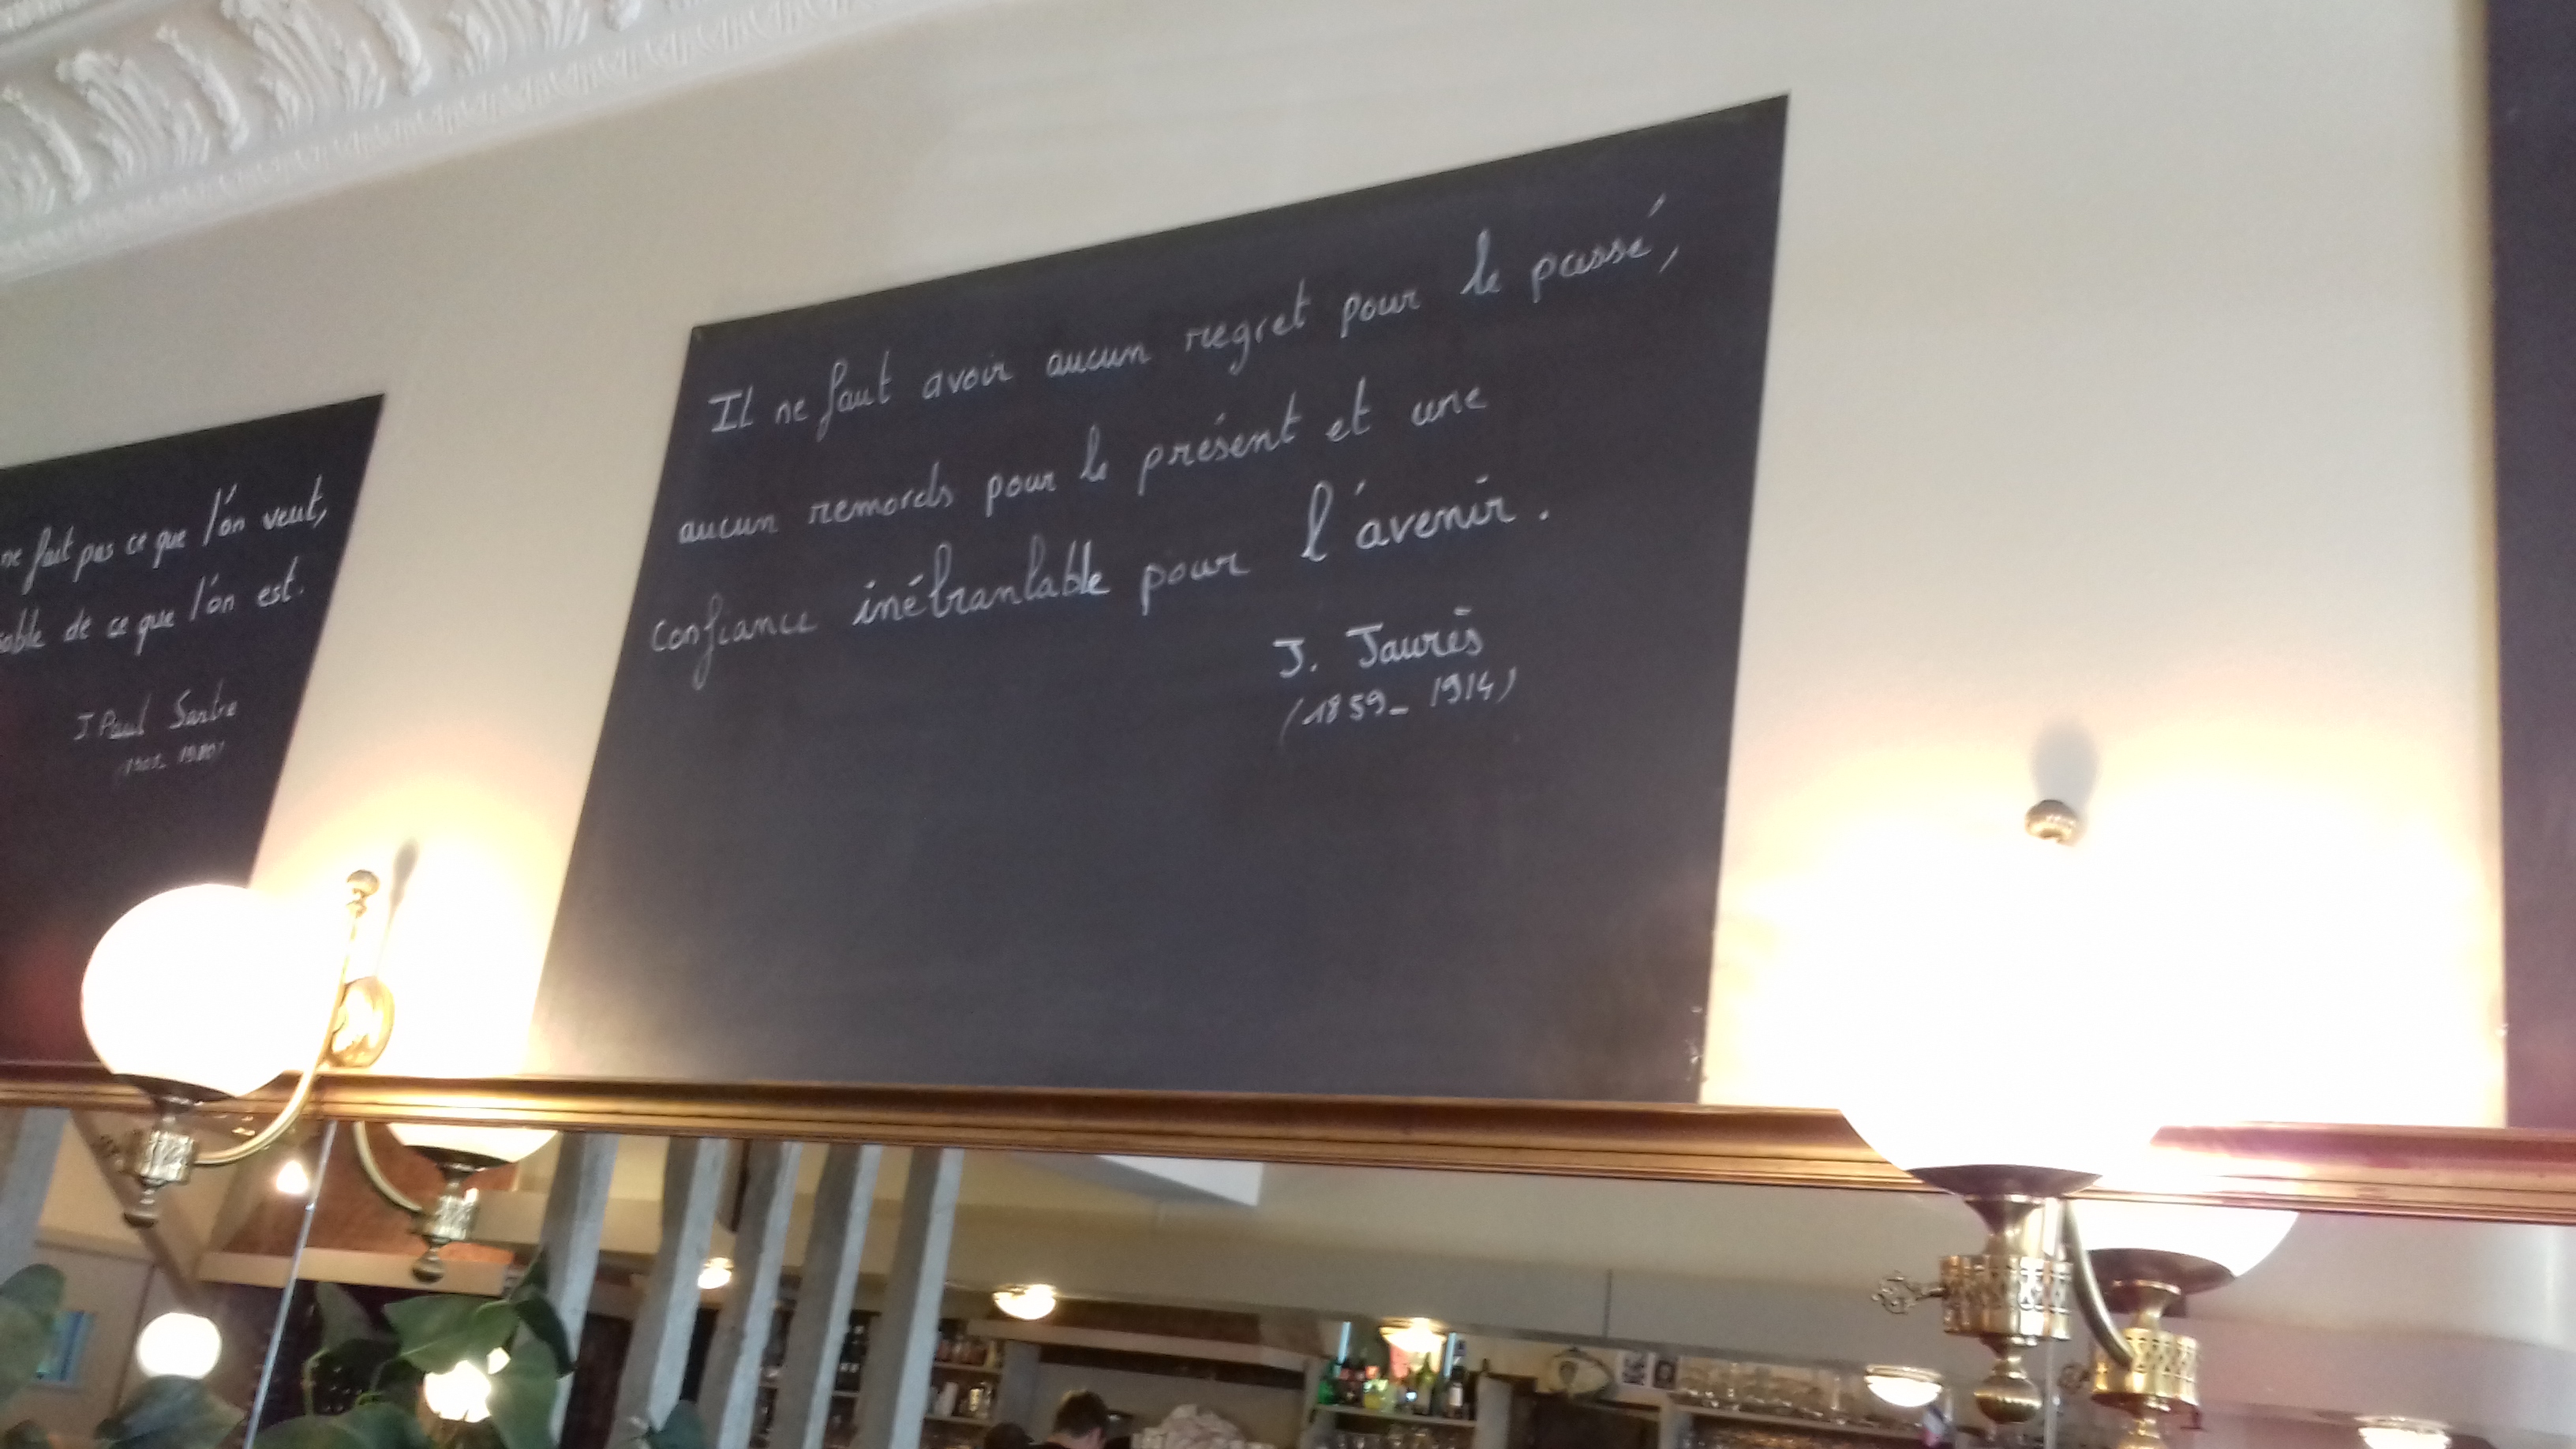 ne fait pas ce que l'on veut,
sable de ce que l'on est.
J Paul Sartre
Il ne faut avoir aucun regret pour le passé,
aucun remords pour le présent et une
confiance inébranlable pour l'avenir.
J. Jaurès
(1859_ 1914)